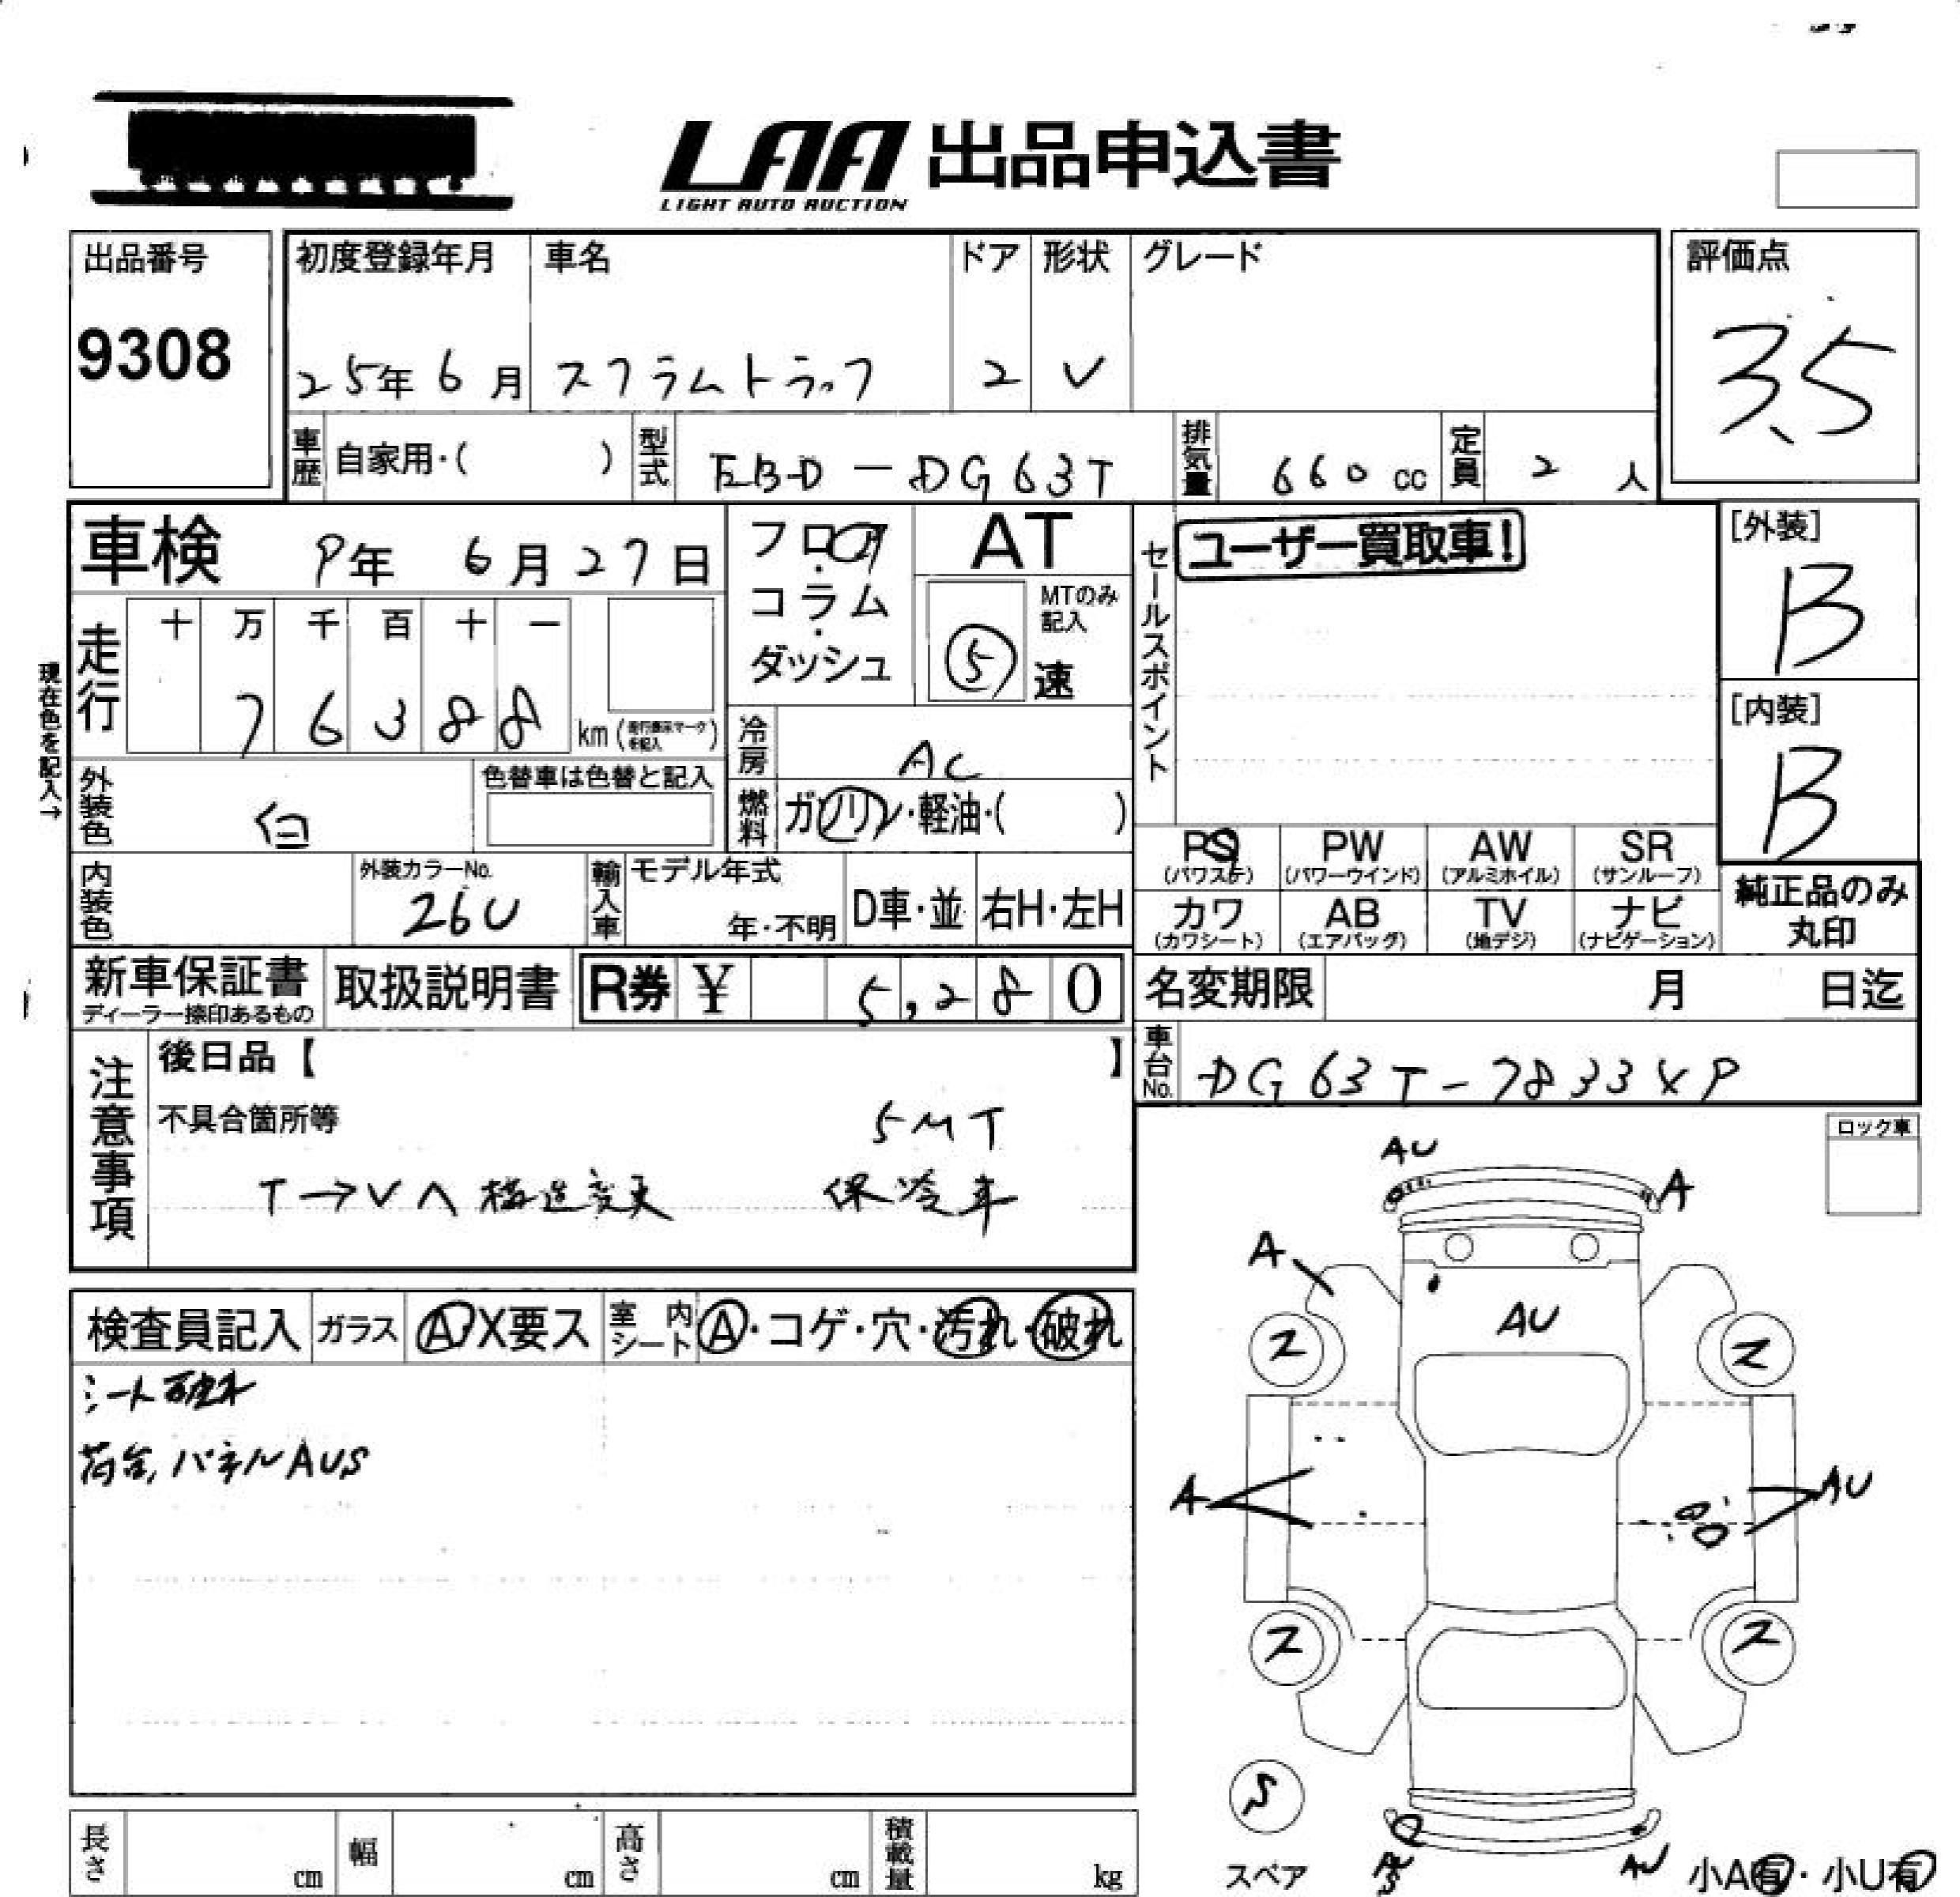 LAA 出品申込書
LIGHT AUTO AUCTION
出品番号
9308
初度登録年月
25年 6月
車名
スクラムトラック
ドア
2
形状
V
グレード
評価点
3.5
車歴 自家用・( )
型式 EBD-DG63T
排気量 660 cc
定員 2 人
車検 9年 6月27日
フロア・コラム・ダッシュ
AT
MTのみ記入
5 速
セールスポイント
ユーザー買取車!
[外装]
B
[内装]
B
走行
十 万 千 百 十 一
7 6 3 8 8 km (走行表示マークを記入)
現在色を記入→
冷房 AC
外装色 白
色替車は色替と記入
燃料 ガソリン・軽油・( )
PS (パワステ)
PW (パワーウインド)
AW (アルミホイル)
SR (サンルーフ)
カワ (カワシート)
AB (エアバッグ)
TV (地デジ)
ナビ (ナビゲーション)
純正品のみ丸印
内装色
外装カラーNo.
26U
輸入車
モデル年式
年・不明
D車・並
右H・左H
新車保証書
ディーラー捺印あるもの
取扱説明書
R券 ¥ 5,280
名変期限 月 日迄
車台No. DG63T-7833
注意事項
後日品【 】
不具合箇所等
5MT
T→Vヘ構造変更 保冷車
ロック車
検査員記入
ガラス A・X要ス
室内シート A・コゲ・穴・汚れ・破れ
シート破れ
荷台,パネルAUS
AU
A
A
AU
ス
ス
A
AU
ス
ス
スペア
AU
小A有・小U有
長さ cm
幅 cm
高さ cm
積載量 kg